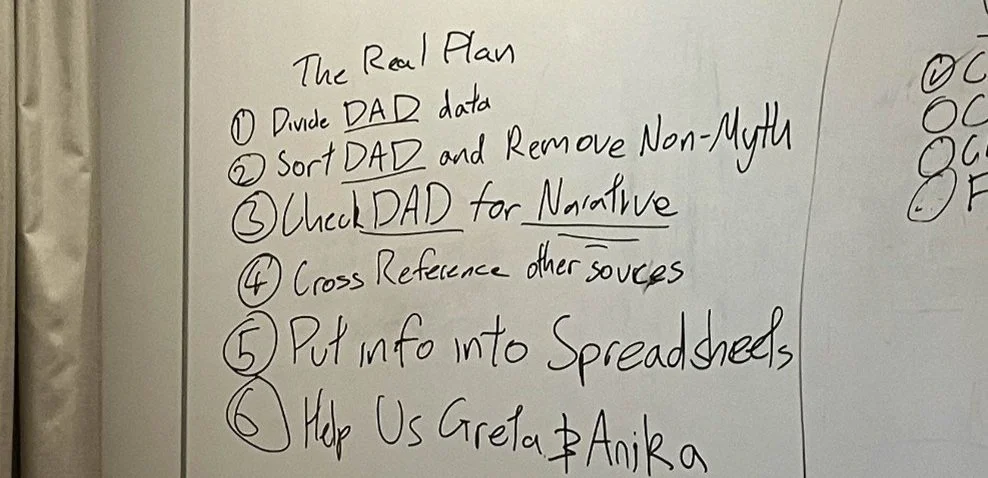 The Real Plan
① Divide DAD data
② Sort DAD and Remove Non-Myth
③ Check DAD for Narative
④ Cross Reference other souces
⑤ Put info into Spreadsheets
⑥ Help Us Greta & Anika